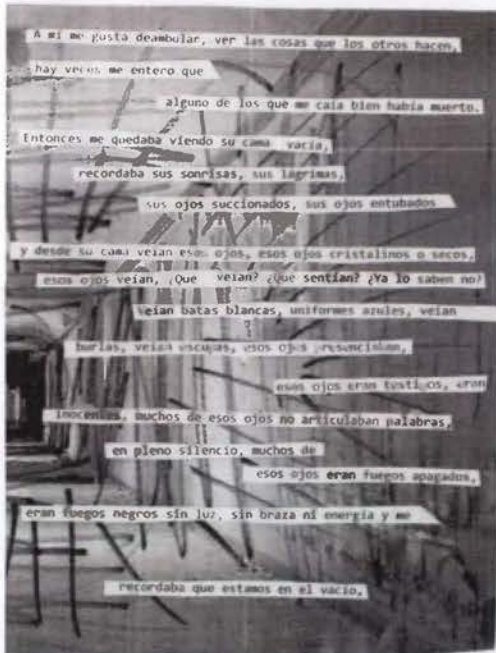 A mi me gusta deambular, ver las cosas que los otros hacen,
hay veces me entero que
alguno de los que me caia bien había muerto.
Entonces me quedaba viendo su cama vacia,
recordaba sus sonrisas, sus lágrimas,
sus ojos succionados, sus ojos entubados
y desde su cama veian esos ojos, esos ojos cristalinos o secos,
esos ojos veían, ¿Que veian? ¿Que sentían? ¿Ya lo saben no?
Veían batas blancas, uniformes azules, veian
burlas, veian escupas, esos ojos presenciaban,
esos ojos eran testigos, eran
inocentes, muchos de esos ojos no articulaban palabras,
en pleno silencio, muchos de
esos ojos eran fuegos apagados,
eran fuegos negros sin luz, sin braza ni energía y me
recordaba que estamos en el vacio,